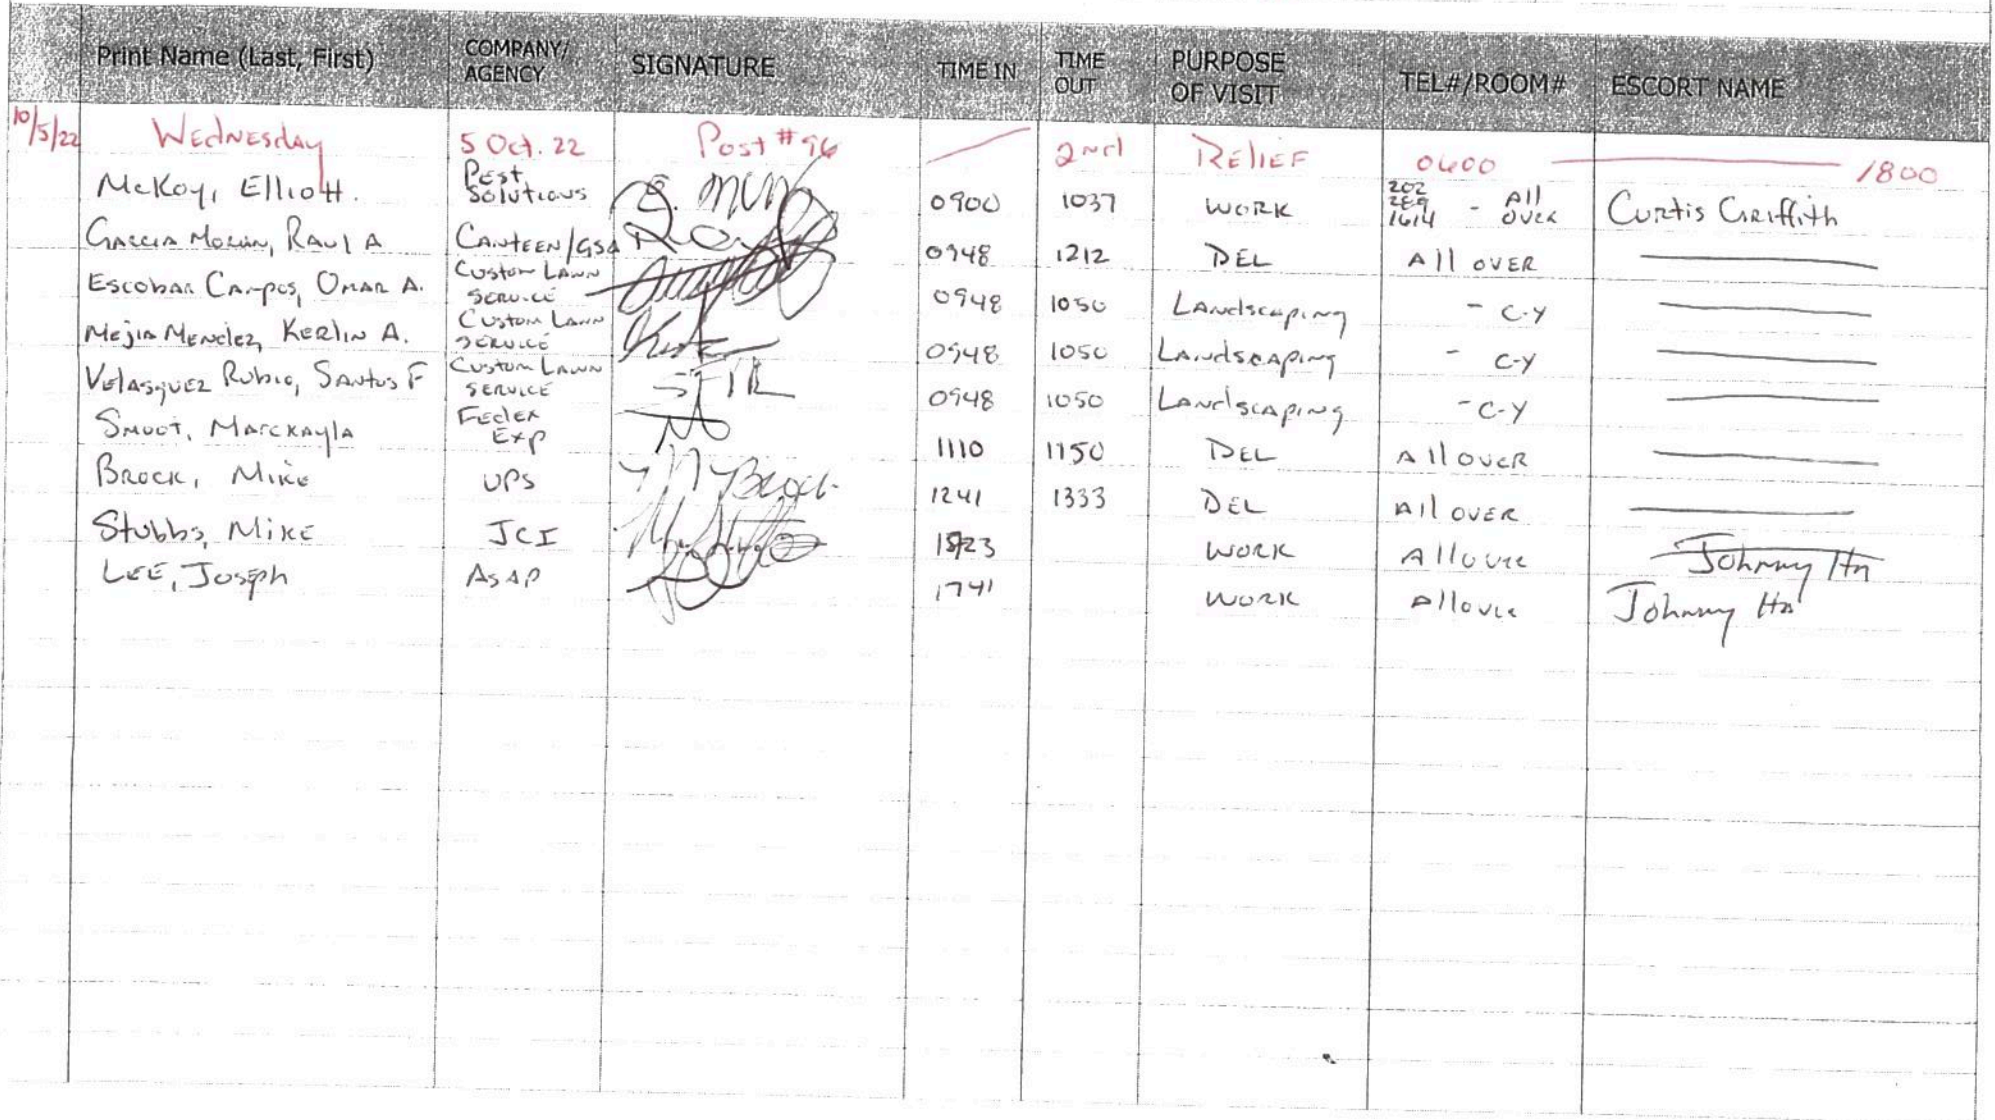 Print Name (Last, First) COMPANY/ AGENCY SIGNATURE TIME IN TIME OUT PURPOSE OF VISIT TEL#/ROOM# ESCORT NAME
10/5/22 Wednesday 5 Oct. 22 Post #96 2nd RELIEF 0600 1800
McKoy, Elliott. Pest Solutions 0900 1037 WORK 202 269 1614 - All over Curtis Griffith
Garcia Moran, Raul A CANTEEN/GSA 0948 1212 DEL All over
Escobar Campos, Omar A. Custom Lawn Service 0948 1050 Landscaping - C-Y
Mejia Mendez, Kerlin A. Custom Lawn Service 0948 1050 Landscaping - C-Y
Velasquez Rubio, Santos F Custom Lawn Service SFVR 0948 1050 Landscaping - C-Y
Smoot, Marckayla Fedex Exp 1110 1150 DEL All over
Brock, Mike UPS M Brock 1241 1333 DEL All over
Stubbs, Mike JCI 1523 WORK All over Johnny Hn
LEE, Joseph ASAP 1741 WORK All over Johnny Hn